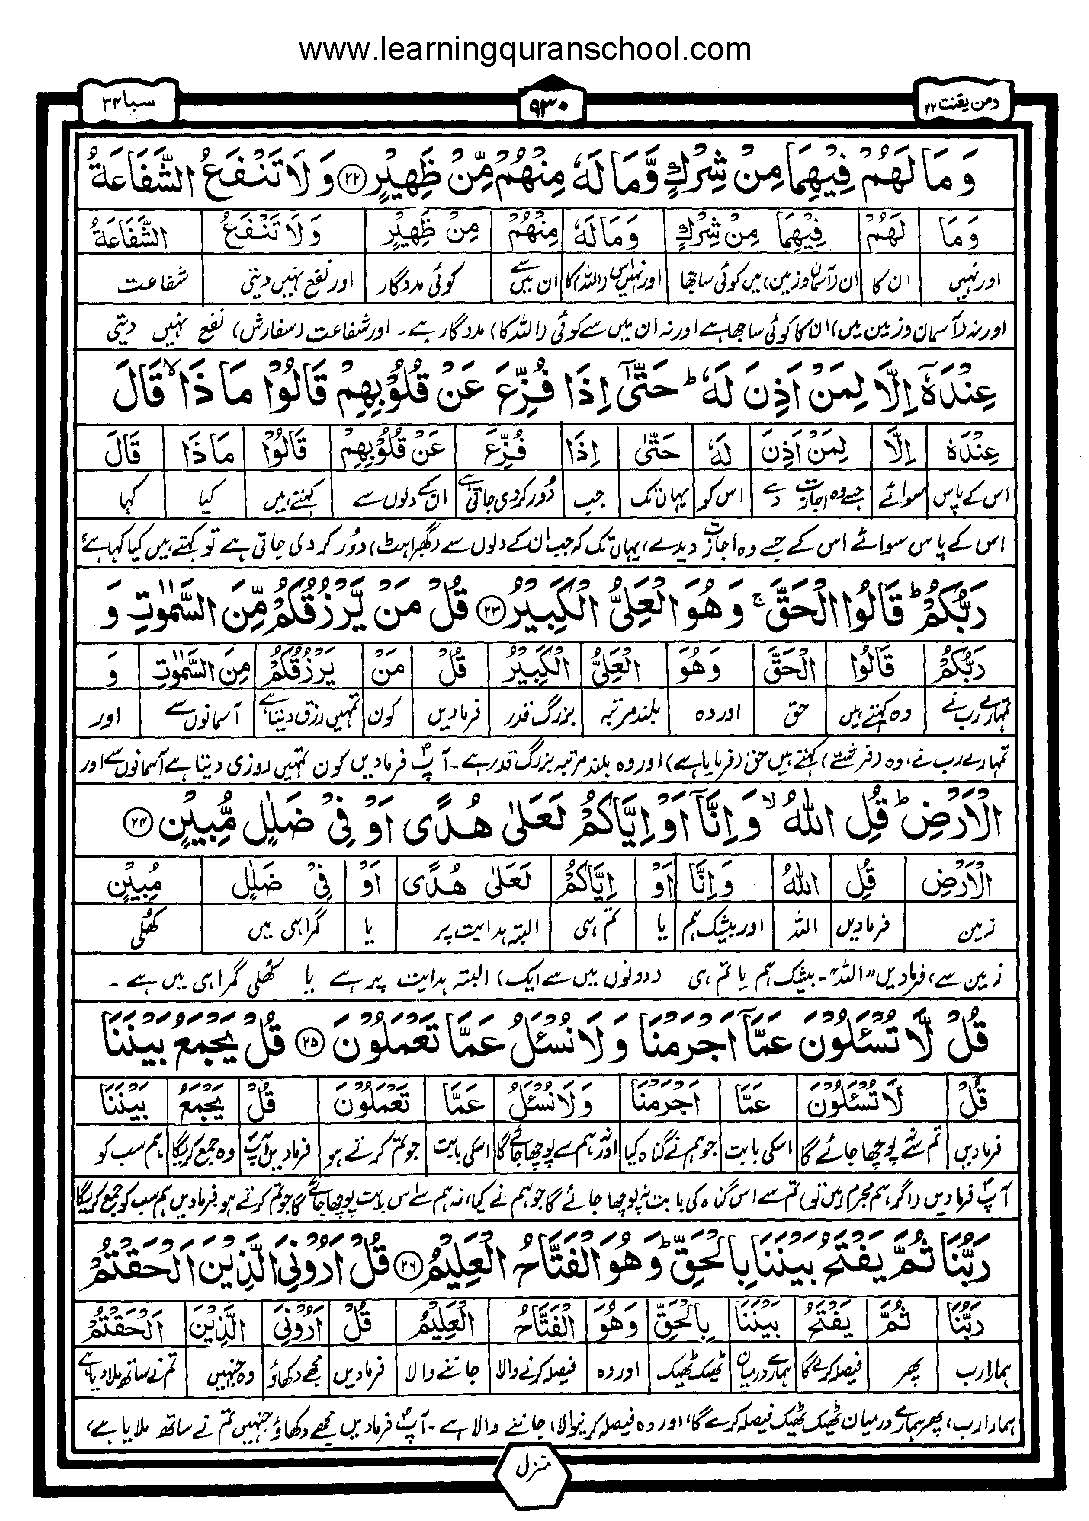 www.learningquranschool.com
ومن یقنت ۲۲ ۹۳۰ سبا ۳۴
وَمَا لَهُمْ فِيْهِمَا مِنْ شِرْكٍ وَّمَا لَهٗ مِنْهُمْ مِّنْ ظَهِيْرٍ ۲۲ وَلَا تَنْفَعُ الشَّفَاعَةُ
وَمَا لَهُمْ فِيْهِمَا مِنْ شِرْكٍ وَمَا لَهٗ مِنْهُمْ مِنْ ظَهِيْرٍ وَلَا تَنْفَعُ الشَّفَاعَةُ
اور نہیں ان کا ان (آسمان و زمین) میں کوئی ساجھا اور نہیں اس (اللہ) کا ان میں سے کوئی مددگار اور نفع نہیں دیتی شفاعت
اور نہ (آسمان و زمین میں) ان کا کوئی ساجھا ہے اور نہ ان میں سے کوئی (اللہ کا) مددگار ہے۔ اور شفاعت (سفارش) نفع نہیں دیتی
عِنْدَهٗٓ اِلَّا لِمَنْ اَذِنَ لَهٗ ؕ حَتّٰٓى اِذَا فُزِّعَ عَنْ قُلُوْبِهِمْ قَالُوْا مَاذَا ۙ قَالَ
عِنْدَهٗ اِلَّا لِمَنْ اَذِنَ لَهٗ حَتّٰى اِذَا فُزِّعَ عَنْ قُلُوْبِهِمْ قَالُوْا مَاذَا قَالَ
اس کے پاس سوائے جسے وہ اجازت دے اس کو یہاں تک جب دُور کر دی جاتی ہے ان کے دلوں سے کہتے ہیں کیا کہا
اس کے پاس سوائے اس کے جسے وہ اجازت دیدے، یہاں تک کہ جب ان کے دلوں سے (گھبراہٹ) دُور کر دی جاتی ہے تو کہتے ہیں کیا کہا ہے
رَبُّكُمْ ؕ قَالُوا الْحَقَّ ۚ وَهُوَ الْعَلِىُّ الْكَبِيْرُ ۲۳ قُلْ مَنْ يَّرْزُقُكُمْ مِّنَ السَّمٰوٰتِ وَ
رَبُّكُمْ قَالُوا الْحَقَّ وَهُوَ الْعَلِىُّ الْكَبِيْرُ قُلْ مَنْ يَرْزُقُكُمْ مِنَ السَّمٰوٰتِ وَ
تمہارے رب نے وہ کہتے ہیں حق اور وہ بلند مرتبہ بزرگ قدر فرمادیں کون تمہیں رزق دیتا ہے آسمانوں سے اور
تمہارے رب نے، وہ (فرشتے) کہتے ہیں حق (فرمایا ہے) اور وہ بلند مرتبہ بزرگ قدر ہے۔ آپ فرمادیں کون تمہیں روزی دیتا ہے آسمانوں سے اور
الْاَرْضِ ؕ قُلِ اللّٰهُ ۙ وَاِنَّآ اَوْ اِيَّاكُمْ لَعَلٰى هُدًى اَوْ فِىْ ضَلٰلٍ مُّبِيْنٍ ۲۴
الْاَرْضِ قُلِ اللّٰهُ وَاِنَّآ اَوْ اِيَّاكُمْ لَعَلٰى هُدًى اَوْ فِىْ ضَلٰلٍ مُبِيْنٍ
زمین فرمادیں اللہ اور بیشک ہم یا تم ہی البتہ ہدایت پر یا گمراہی میں کھلی
زمین سے، فرمادیں "اللہ"۔ بیشک ہم یا تم ہی (دونوں میں سے ایک) البتہ ہدایت پر ہے یا کھلی گمراہی میں ہے۔
قُلْ لَّا تُسْئَلُوْنَ عَمَّآ اَجْرَمْنَا وَلَا نُسْئَلُ عَمَّا تَعْمَلُوْنَ ۲۵ قُلْ يَجْمَعُ بَيْنَنَا
قُلْ لَا تُسْئَلُوْنَ عَمَّآ اَجْرَمْنَا وَلَا نُسْئَلُ عَمَّا تَعْمَلُوْنَ قُلْ يَجْمَعُ بَيْنَنَا
فرمادیں تم سے نہ پوچھا جائے گا اسکی بابت جو ہم نے گناہ کیا اور نہ ہم سے پوچھا جائے گا اسکی بابت جو تم کرتے ہو فرمادیں آپ وہ جمع کریگا ہم سب کو
آپ فرمادیں (اگر ہم مجرم ہیں تو) تم سے اس گناہ کی بابت نہ پوچھا جائے گا جو ہم نے کیا، نہ ہم سے اس بابت پوچھا جائے گا جو تم کرتے ہو، فرمادیں ہم سب کو جمع کریگا
رَبُّنَا ثُمَّ يَفْتَحُ بَيْنَنَا بِالْحَقِّ ؕ وَهُوَ الْفَتَّاحُ الْعَلِيْمُ ۲۶ قُلْ اَرُوْنِىَ الَّذِيْنَ اَلْحَقْتُمْ
رَبُّنَا ثُمَّ يَفْتَحُ بَيْنَنَا بِالْحَقِّ وَهُوَ الْفَتَّاحُ الْعَلِيْمُ قُلْ اَرُوْنِىَ الَّذِيْنَ اَلْحَقْتُمْ
ہمارا رب پھر فیصلہ کرے گا ہمارے درمیان ٹھیک ٹھیک اور وہ فیصلہ کرنے والا جاننے والا فرمادیں مجھے دکھاؤ وہ جنہیں تم نے ساتھ ملا دیا ہے
ہمارا رب، پھر ہمارے درمیان ٹھیک ٹھیک فیصلہ کرے گا، اور وہ فیصلہ کرنیوالا، جاننے والا ہے۔ آپ فرمادیں مجھے دکھاؤ جنہیں تم نے ساتھ ملایا ہے،
منزل